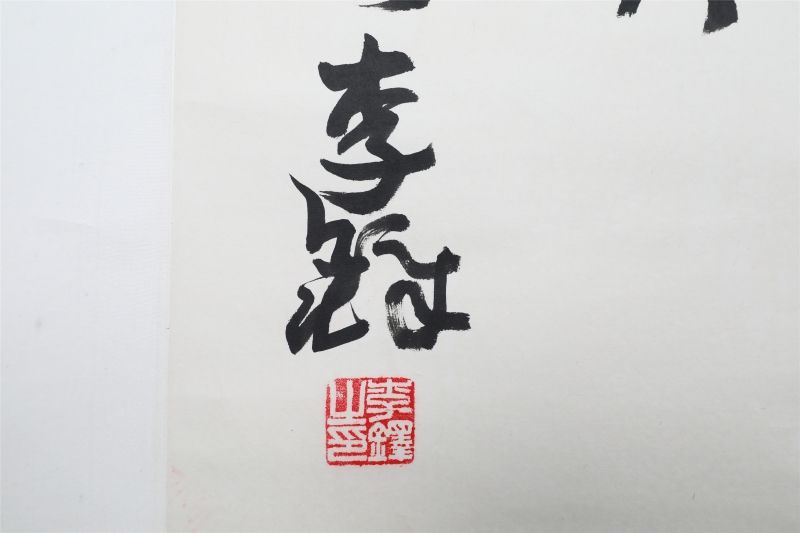 李铎
李鐸之印